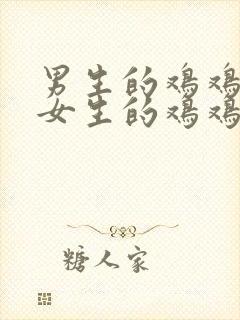 男生的鸡鸡
女生的鸡鸡
糖人家